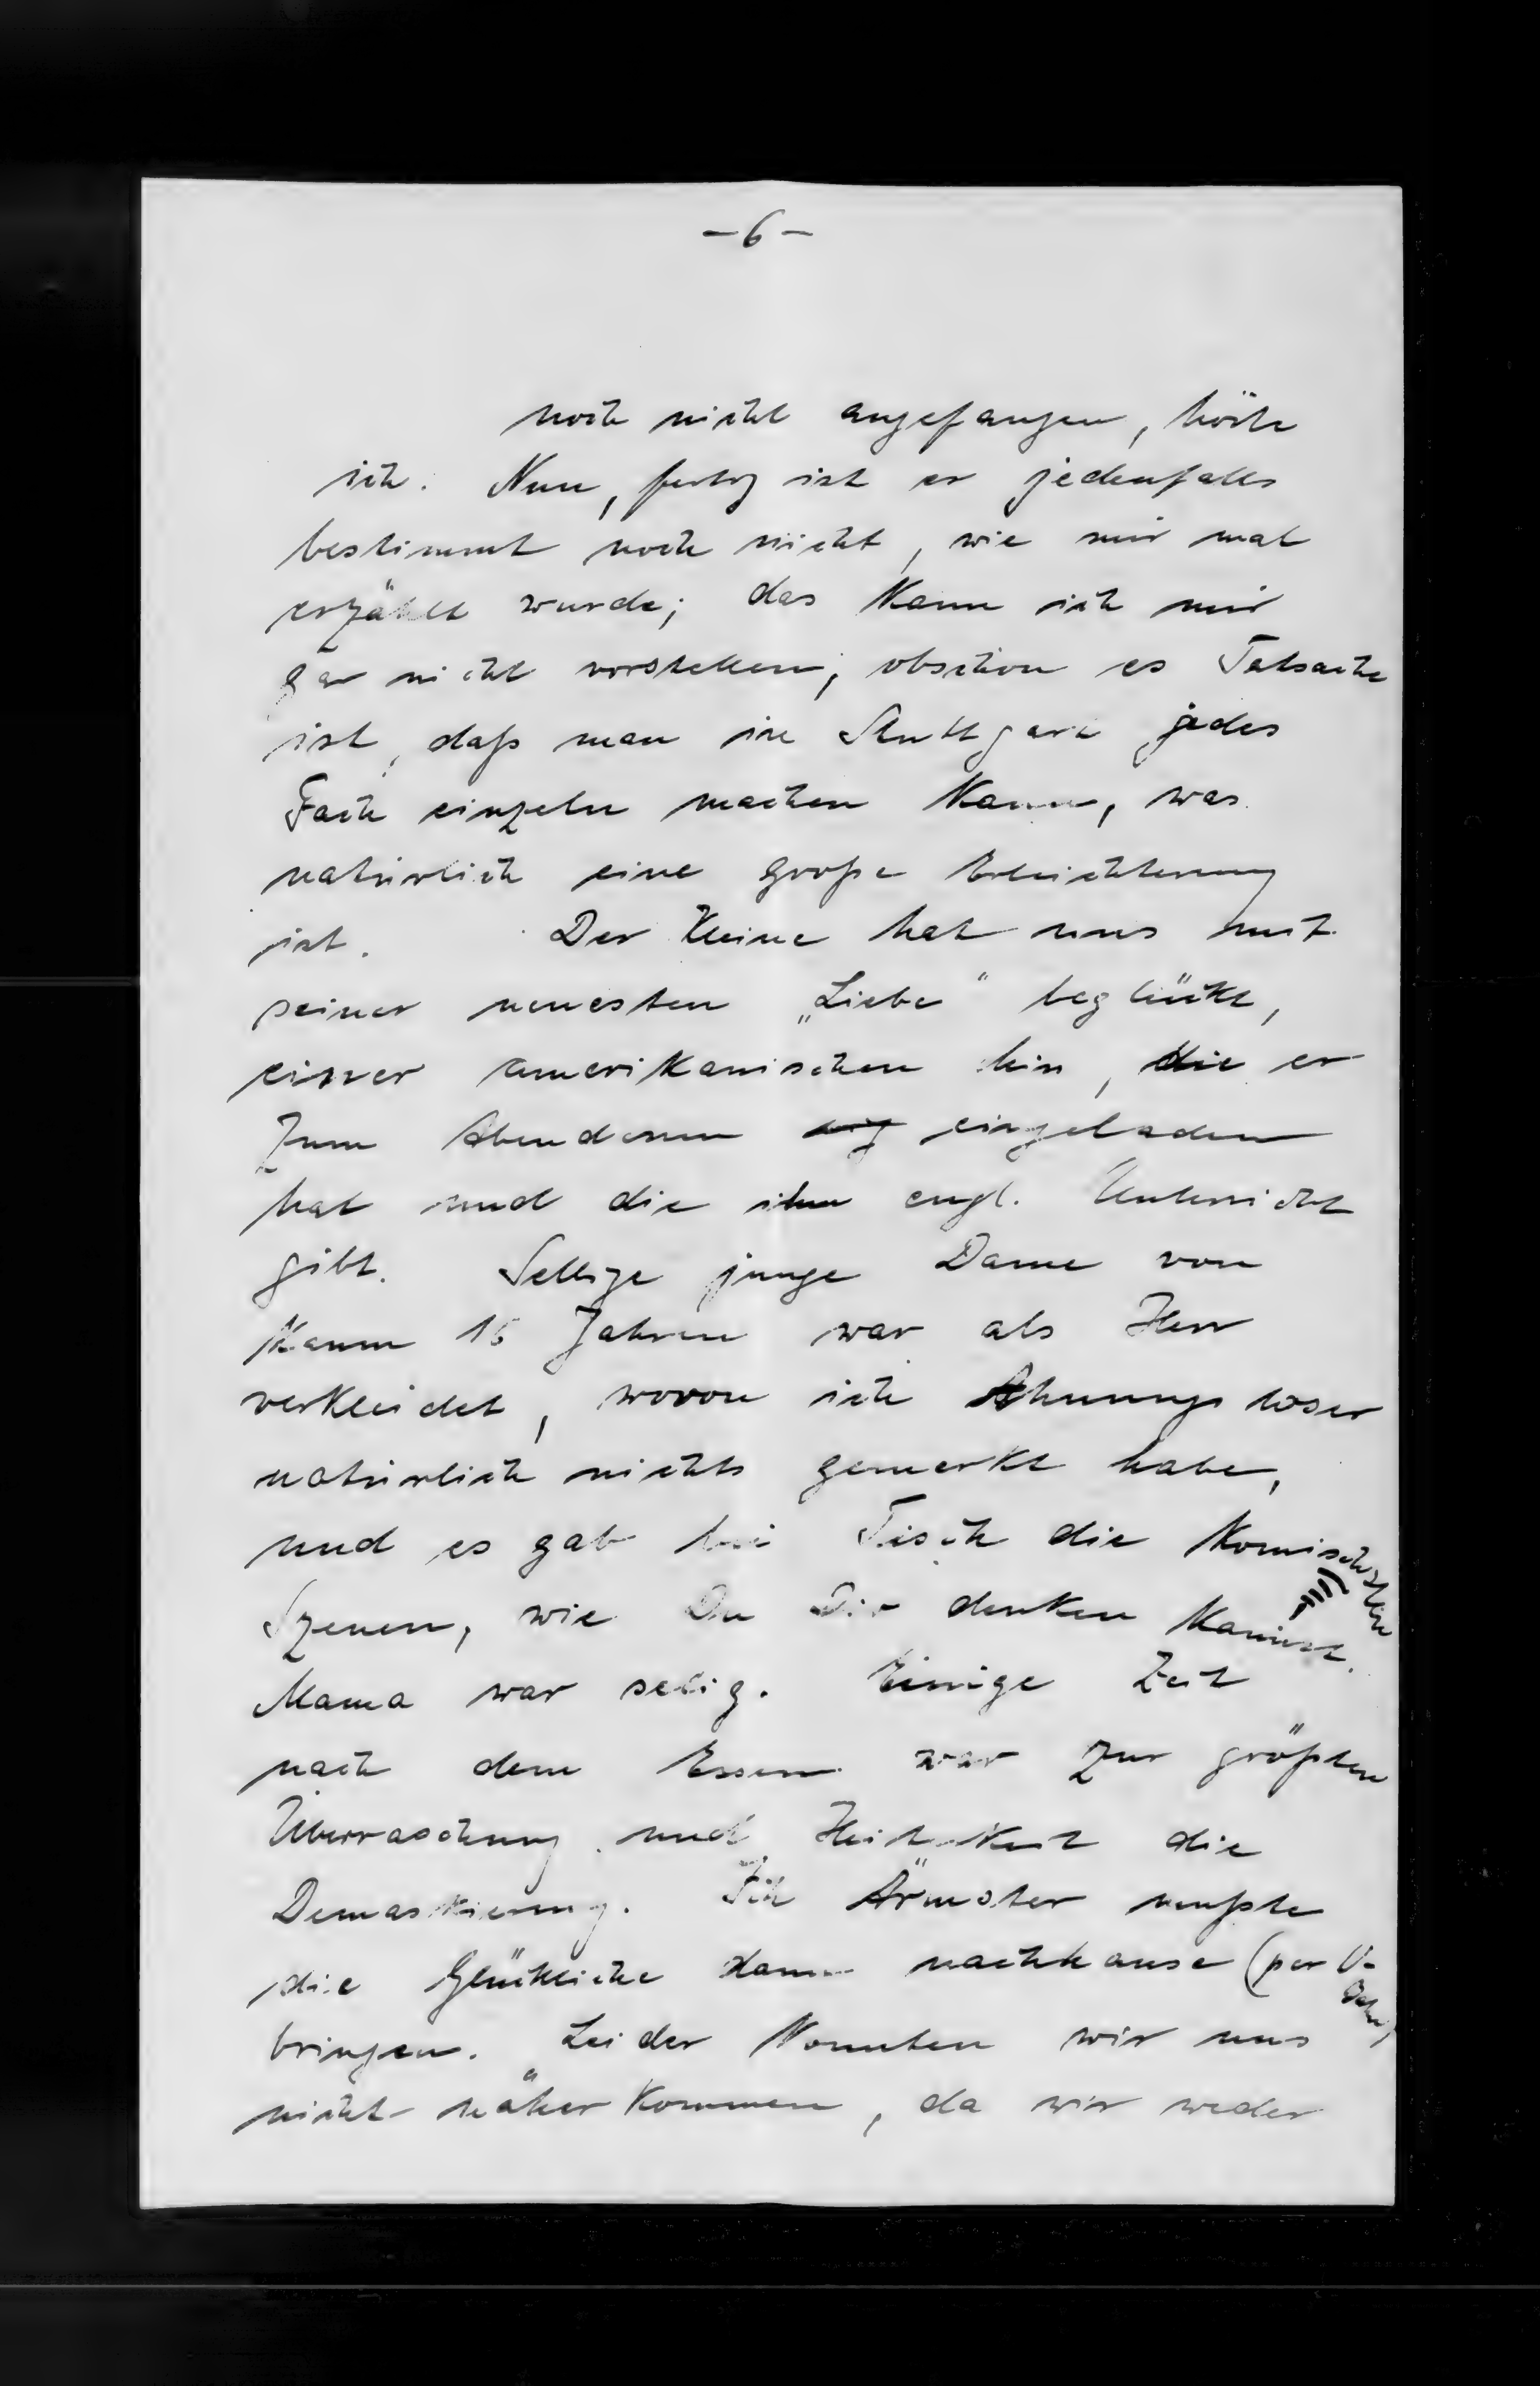 - 6 -
noch nicht angefangen, höre
ich. Nun, fertig ist er jedenfalls
bestimmt noch nicht, wie mir mal
erzählt wurde; das kann ich mir
gar nicht vorstellen; obschon es Tatsache
ist, daß man in Stuttgart jedes
Fach einzeln machen kann, was
natürlich eine große Erleichterung
ist. Der Kleine hat uns mit
seiner neuesten „Liebe" beglückt,
einer amerikanischen, die er
zum Abendessen eingeladen
hat und die ihm engl. Unterricht
gibt. Selbige junge Dame von
kaum 16 Jahren war als Herr
verkleidet, wovon ich Ahnungsloser
natürlich nichts gemerkt habe,
und es gab bei Tisch die komischsten
Szenen, wie Du Dir denken kannst.
Mama war selig. Einige Zeit
nach dem Essen war zur größten
Überraschung und Heiterkeit die
Demaskierung. Ich Ärmster mußte
die Glückliche dann nachhause (per U-Bahn)
bringen. Leider konnten wir uns
nicht näher kommen, da wir weder